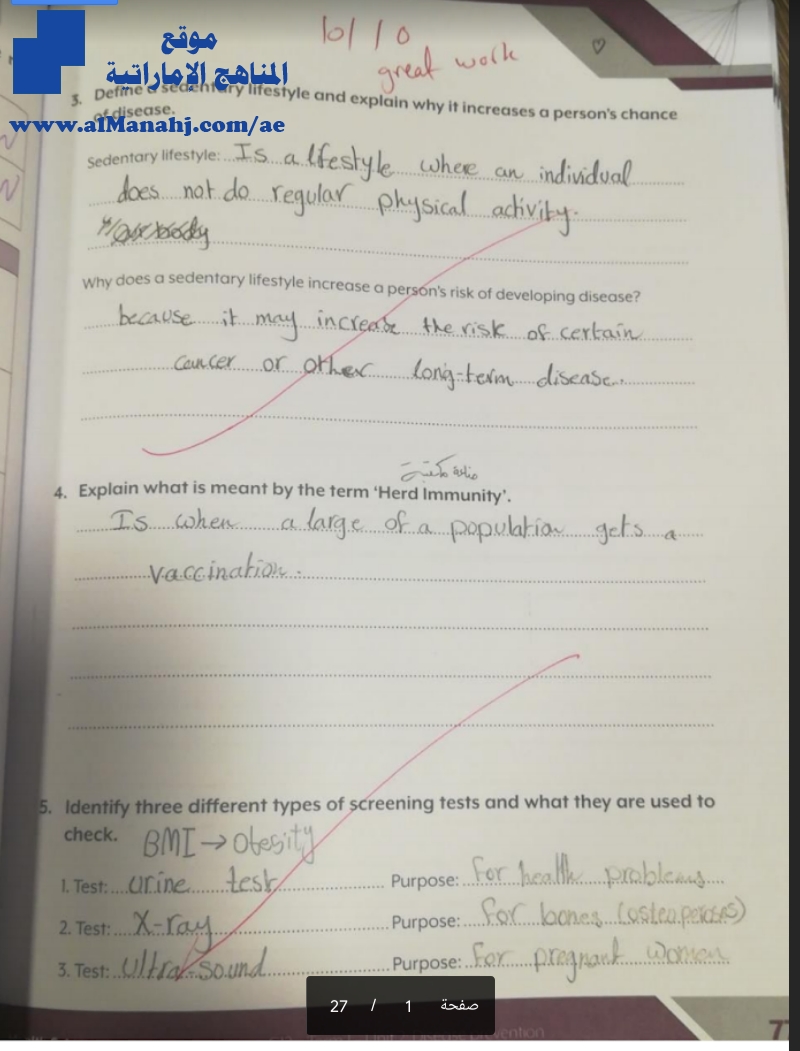 10/10
great work
موقع
المناهج الإماراتية
3. Define a sedentary lifestyle and explain why it increases a person's chance
of disease.
www.alManahj.com/ae
Sedentary lifestyle: Is a lifestyle where an individual
does not do regular physical activity.
Why does a sedentary lifestyle increase a person's risk of developing disease?
because it may increase the risk of certain
cancer or other long-term disease.
4. Explain what is meant by the term 'Herd Immunity'.
Is when a large of a population gets a
vaccination.
5. Identify three different types of screening tests and what they are used to
check. BMI → Obesity
1. Test: urine test Purpose: for health problems
2. Test: X-ray Purpose: for bones (osteoperoses)
3. Test: Ultra-sound Purpose: for pregnant women
صفحة 1 / 27